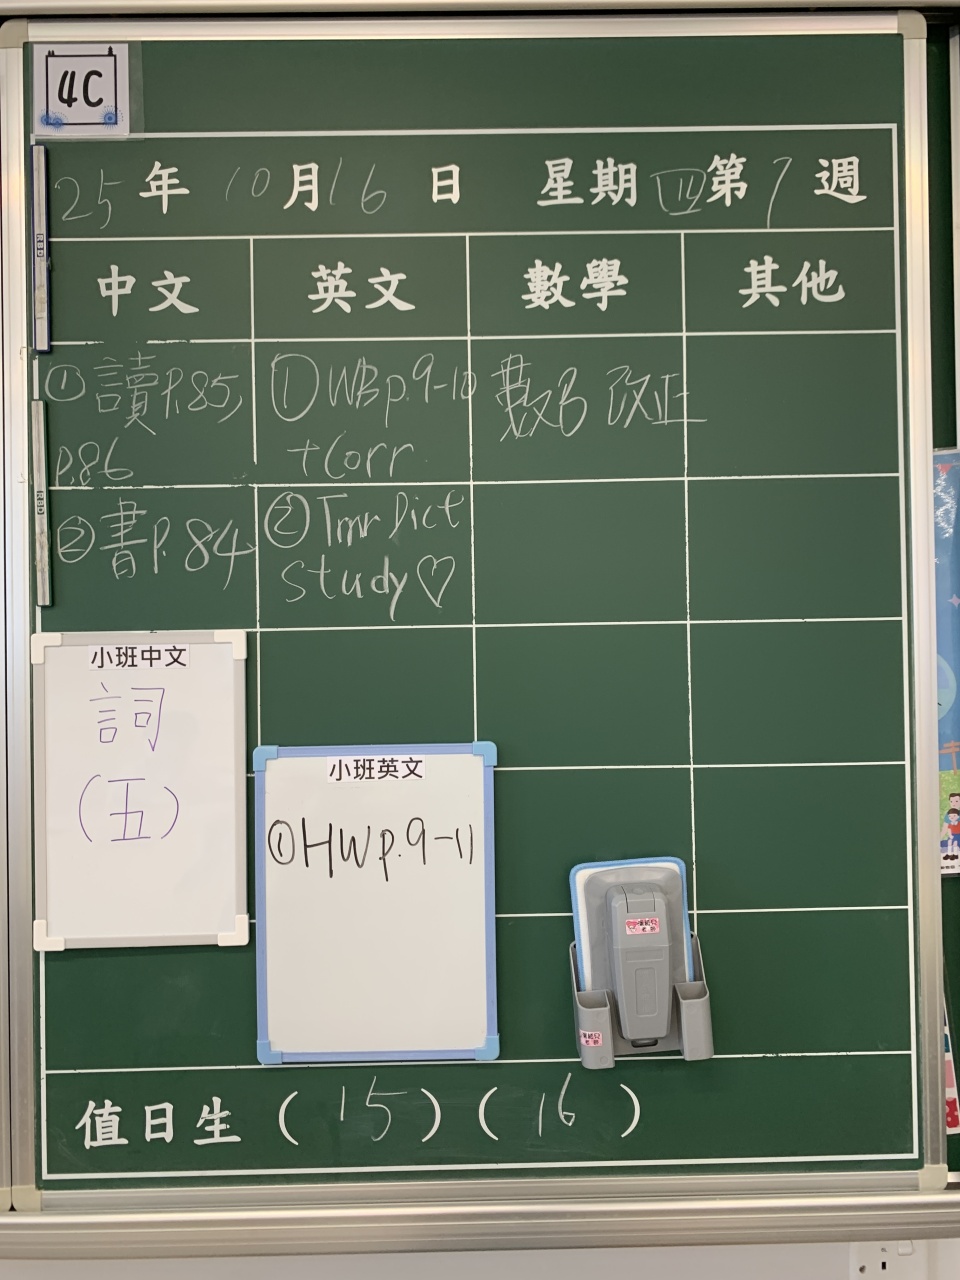 4C
25年10月16日 星期四第7週
中文 英文 數學 其他
①讀P.85,
P.86
②書P.84
①WBp.9-10
+Corr
②Tmr Dict
Study♡
改正
小班中文
詞
(五)
小班英文
①HWp.9-11
值日生 (15) (16)